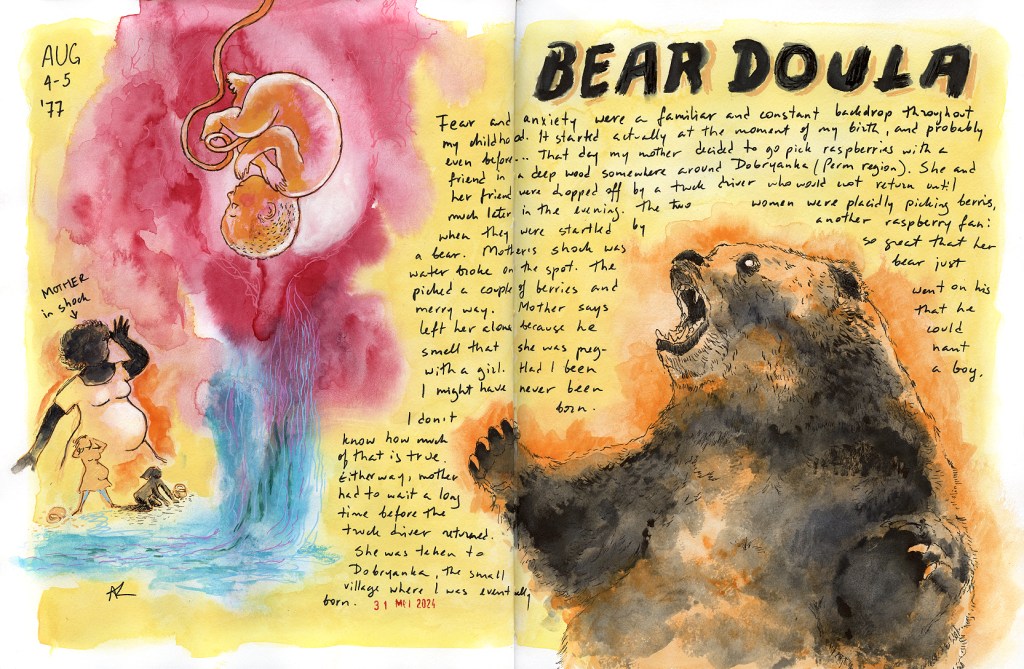 AUG
4-5
'77
BEAR DOULA
Fear and anxiety were a familiar and constant backdrop throughout
my childhood. It started actually at the moment of my birth, and probably
even before... That day my mother decided to go pick raspberries with a
friend in a deep wood somewhere around Dobryanka (Perm region). She and
her friend were dropped off by a truck driver who would not return until
much later in the evening. The two women were placidly picking berris,
when they were startled by another raspberry fan:
a bear. Mother's shock was so great that her
water broke on the spot. The bear just
picked a couple of berries and went on his
merry way. Mother says that he
left her alone because he could
smell that she was preg- nant
with a girl. Had I been a boy,
I might have never been
born.
I don't
know how much
of that is true.
Either way, mother
had to wait a long
time before the
truck driver returned.
She was taken to
Dobryanka, the small
village where I was eventually
born. 31 MEI 2024
MOTHER
in shock
AZ